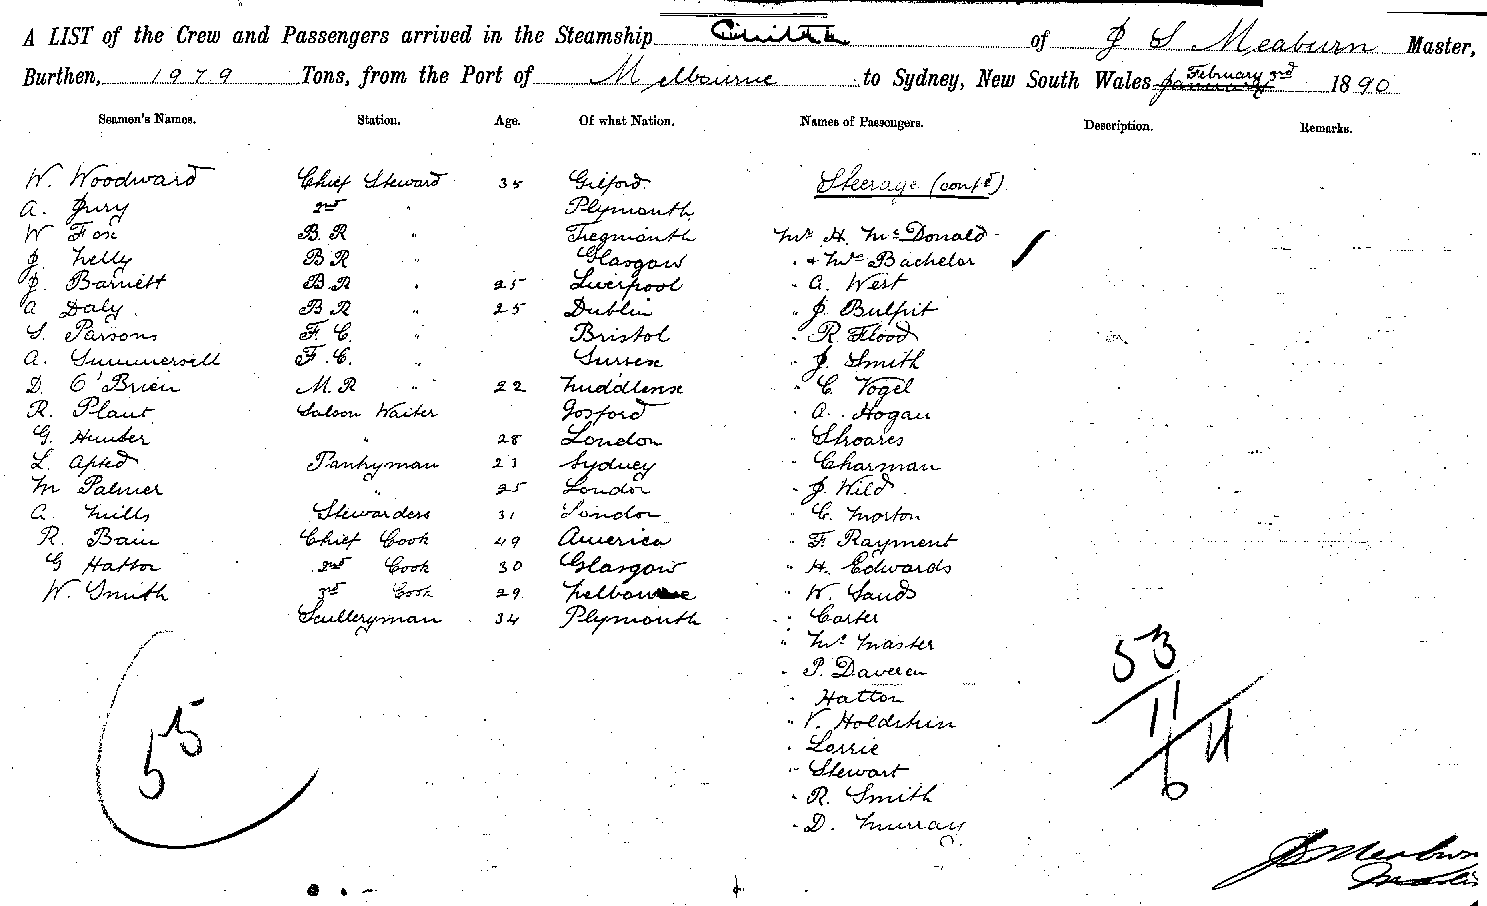 A LIST of the Crew and Passengers arrived in the Steamship of J S Meaburn Master,
Burthen, 1979 Tons, from the Port of Melbourne to Sydney, New South Wales January February 3rd 1890
Seamen's Names. Station. Age. Of what Nation. Names of Passengers. Description. Remarks.
W. Woodward Chief Steward 35 Gilford Steerage (contd)
A. Jury 2nd " Plymouth
W Fox B.R " Tiegmonth Mr H. McDonald
J. Kelly B R " Glasgow " & Mrs Bachelor
J. Barnett B.R " 25 Liverpool " A. West
A Daly B R " 25 Dublin " J. Bulpit
S. Parsons F. C. " Bristol " R. Flood
A. Summersvill F. C. " Sussex " J. Smith
D. O'Brien M. R " 22 Middlensx " C. Vogel
R. Plant Saloon Waiter Gosford " A. Hogan
G. Humber " 28 London " Shoares
L. Apted Pantryman 21 Sydney " Charman
M Palmer " 25 London " J. Wild
A. Mills Stewardess 31 London " C. Morton
R. Bain Chief Cook 49 America " F. Rayment
G Hatton 2nd Cook 30 Glasgow " H. Edwards
W. Smith 3rd Cook 29 Melbourne " W. Sands
Scullery­man 34 Plymouth " Carter
" McMaster
" P. Daveren
" Hatton
" V. Holdskin
" Lorrie
" Stewart
" R. Smith
" D. Murray
53
11
6
11
55
J S Meaburn
Master